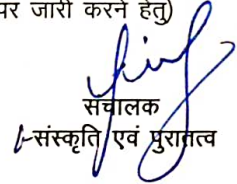 पर जारी करने हेतु)
संचालक
संस्कृति एवं पुरातत्व